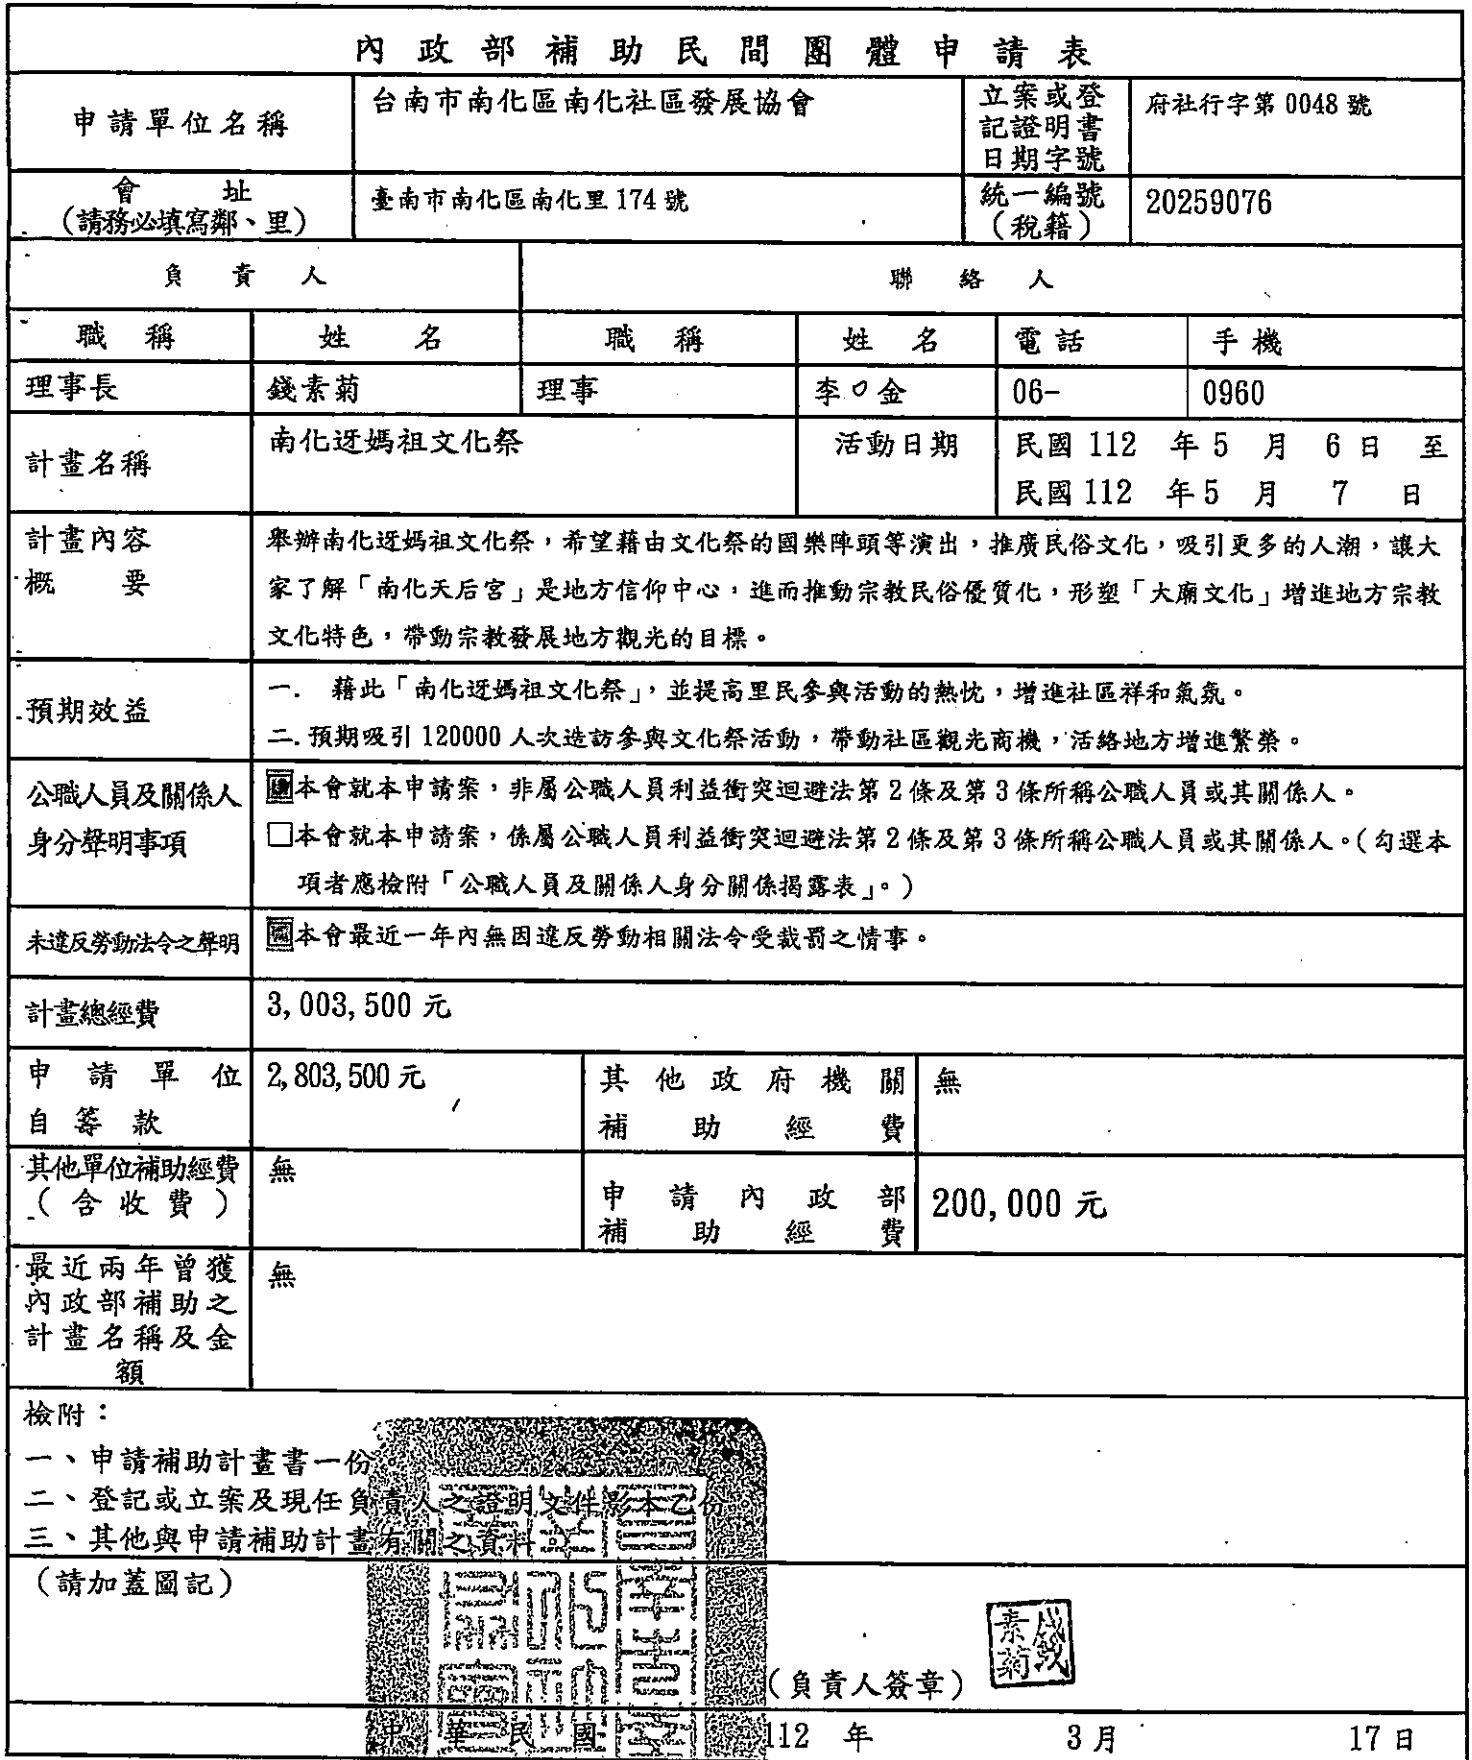 內政部補助民間團體申請表
申請單位名稱 台南市南化區南化社區發展協會 立案或登記證明書日期字號 府社行字第 0048 號
會址 (請務必填寫鄰、里) 臺南市南化區南化里 174 號 統一編號 (稅籍) 20259076
負責人 聯絡人
職稱 姓名 職稱 姓名 電話 手機
理事長 錢素菊 理事 李○金 06- 0960
計畫名稱 南化迓媽祖文化祭 活動日期 民國 112 年 5 月 6 日 至
民國 112 年 5 月 7 日
計畫內容
概要
舉辦南化迓媽祖文化祭,希望藉由文化祭的國樂陣頭等演出,推廣民俗文化,吸引更多的人潮,讓大
家了解「南化天后宮」是地方信仰中心,進而推動宗教民俗優質化,形塑「大廟文化」增進地方宗教
文化特色,帶動宗教發展地方觀光的目標。
預期效益
一. 藉此「南化迓媽祖文化祭」,並提高里民參與活動的熱忱,增進社區祥和氣氛。
二. 預期吸引 120000 人次造訪參與文化祭活動,帶動社區觀光商機,活絡地方增進繁榮。
公職人員及關係人
身分聲明事項
本會就本申請案,非屬公職人員利益衝突迴避法第 2 條及第 3 條所稱公職人員或其關係人。
□本會就本申請案,係屬公職人員利益衝突迴避法第 2 條及第 3 條所稱公職人員或其關係人。(勾選本
項者應檢附「公職人員及關係人身分關係揭露表」。)
未違反勞動法令之聲明 本會最近一年內無因違反勞動相關法令受裁罰之情事。
計畫總經費 3,003,500 元
申請單位
自籌款
2,803,500 元
其他政府機關
補助經費
無
其他單位補助經費
(含收費)
無
申請內政部
補助經費
200,000 元
最近兩年曾獲
內政部補助之
計畫名稱及金
額
無
檢附:
一、申請補助計畫書一份
二、登記或立案及現任負責人之證明文件影本乙份
三、其他與申請補助計畫有關之資料
(請加蓋圖記)
錢素菊
(負責人簽章)
中華民國 112 年 3 月 17 日